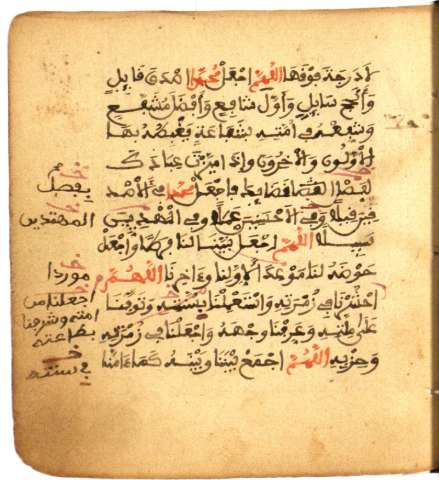 لا درجة فوقها اللهم اجعل محمدا اصدق قايل
وانجح سايل واول شافع وافضل مشفع
وشفعه في امته شفاعة يغبطه بها
الاولون والاخرون واذا ميزت عبادك
فاجعل محمدا في الاصد
قين قيلا وفي الاحسنين عملا وفي المهديين
سبيلا اللهم اجعل نبينا لنا فرطا واجعل
حوضه لنا موعدا لاولنا وءاخرنا اللهم
احشرنا في زمرته واستعملنا بسنته وتوفنا
على ملته وعرفنا وجهه واجعلنا في زمرته
وحزبه اللهم اجمع بيننا وبينه كما ءامنا
بفصل
المهتدين
موردا
اجعلنا من
امته وشرفنا
بطاعته
في سنته